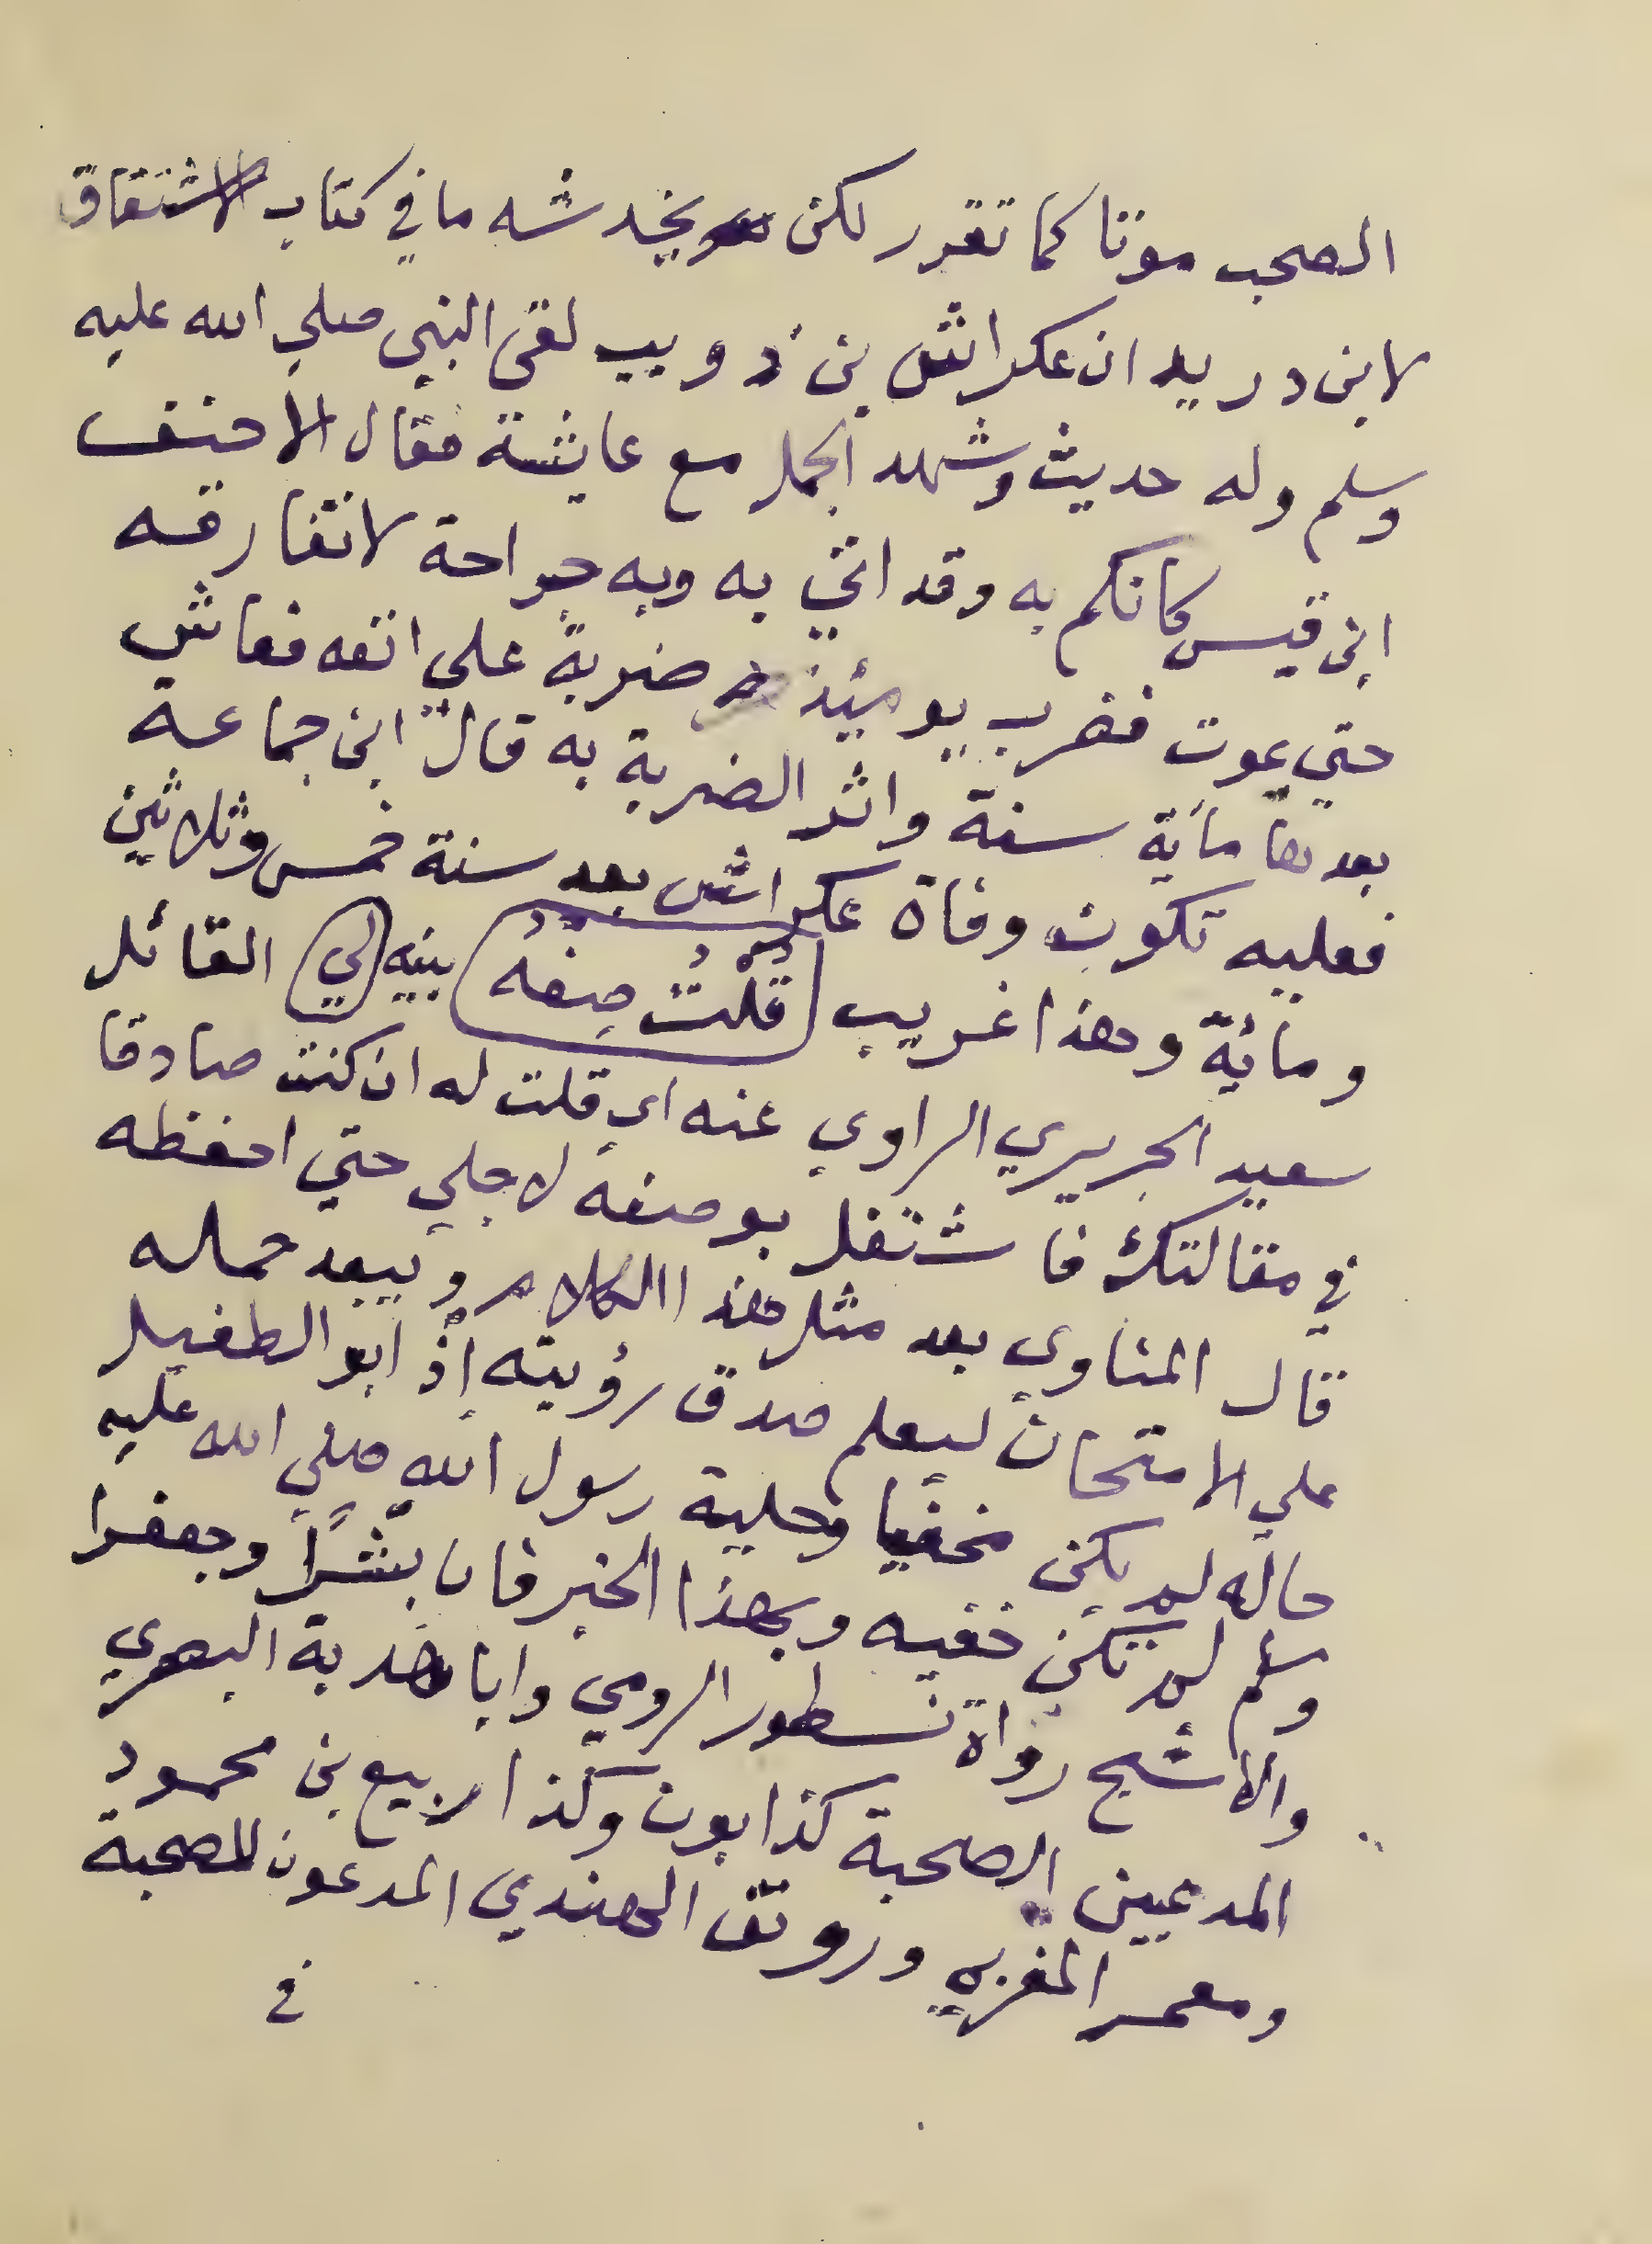 الصحب موتا كما تقرر لكن يخدشه ما في كتاب الاشتقاق
لابن دريد ان عكراش بن ذويب لقى النبي صلي الله عليه
وسلم وله حديث وشهد الجمل مع عايشة فقال الاحنف
ابن قيس كانكم به وقد اتي به وبه جراحة لا تفارقه
حتي يموت فضرب يوميئذ ضربة علي انفه فعاش
بعدها مأية سنة واثر الضربة به قال ابن جماعة
فعليه تكون وفاة عكراش بعد سنة خمس وثلاثين
ومائية وهذا غريب قُلْتُ صِفهُ بينه لي القائل
سعيد الجريري الراوي عنه اي قلت له ان كنت صادقا
في مقالتك فاشتغل بوصفه لاجلي حتي احفظه
قال المناوي بعد مثل هذا الكلام ويبعد حمله
علي الامتحان ليعلم صدق رؤيته إذ ابو الطفيل
حاله لم يكن مخفيا وحلية رسول الله صلي الله عليه
وسلم لم تكن خفيه وبهذا الخبر فان بشرًا وجعفرا
والاشج رواة نسطور الرومي وابا هدبة البصري
المدعيين الصحبة كذابون وكذا ربيع بن محمود
ومعمر المغربي ورتن الهندي المدعون للصحبة
في